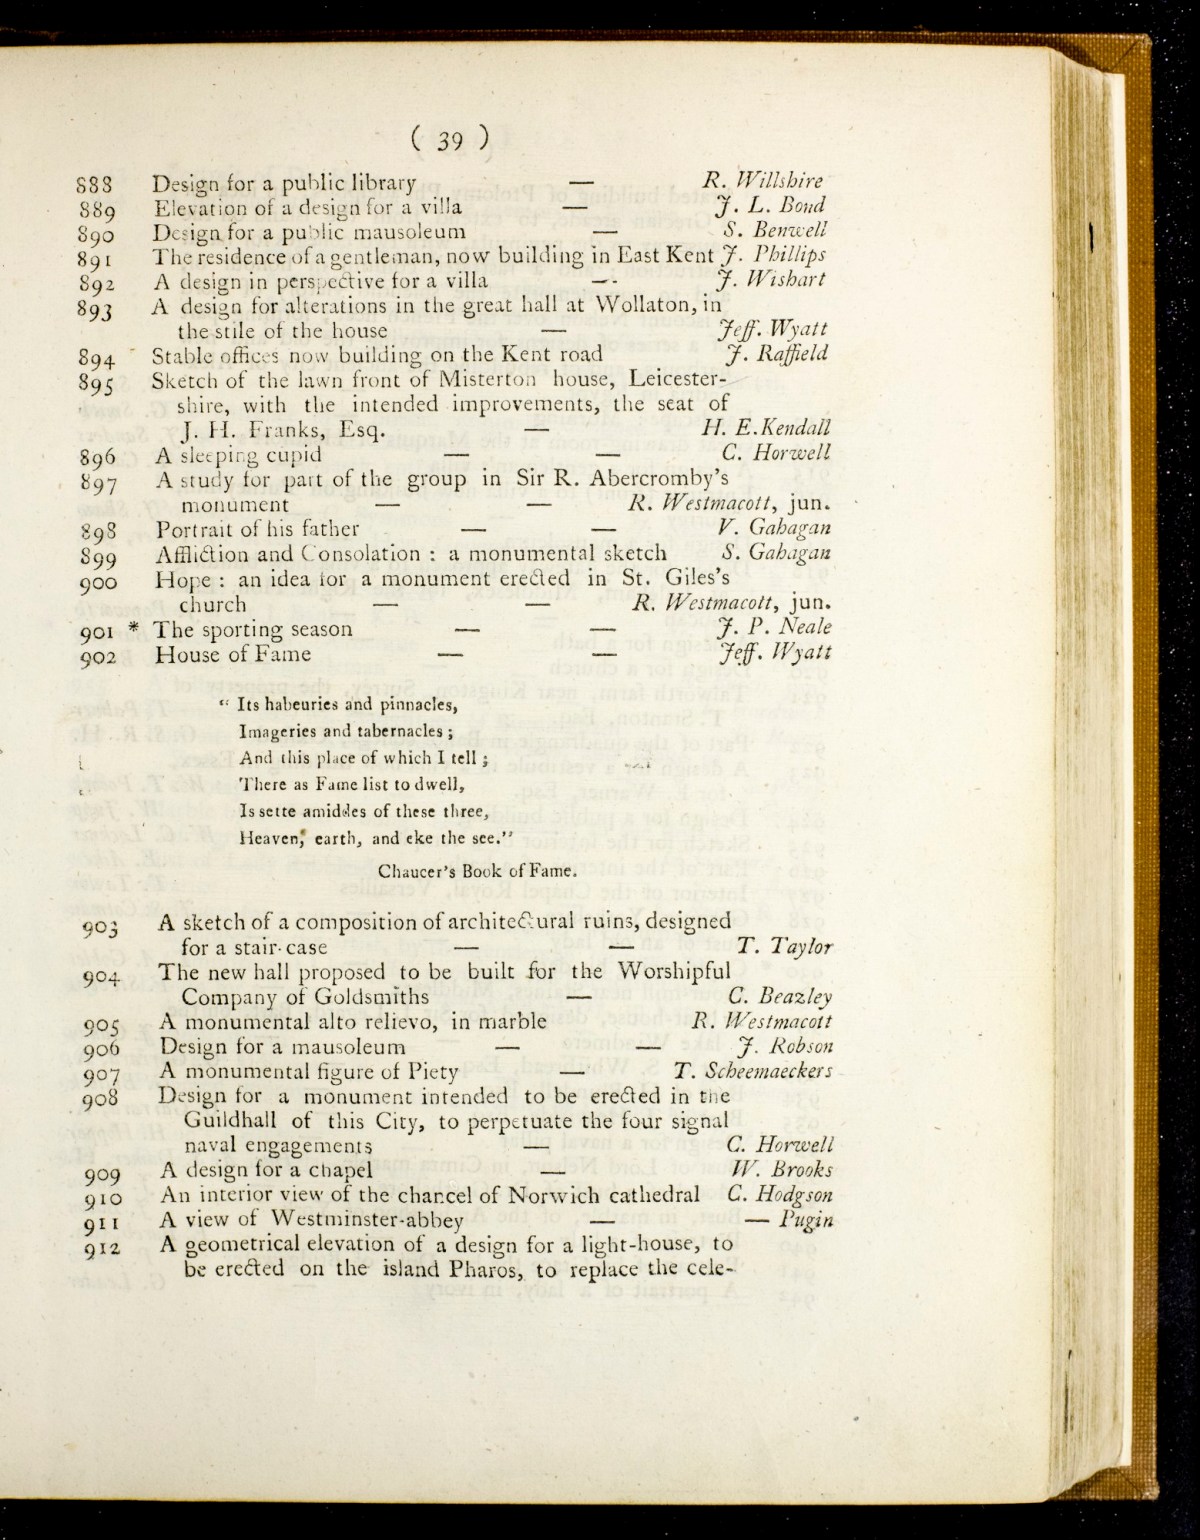 ( 39 )
888 Design for a public library — R. Willshire
889 Elevation of a design for a villa — J. L. Bond
890 Design for a public mausoleum — S. Benwell
891 The residence of a gentleman, now building in East Kent J. Phillips
892 A design in perspective for a villa — J. Wishart
893 A design for alterations in the great hall at Wollaton, in
the stile of the house — Jeff. Wyatt
894 Stable offices now building on the Kent road J. Raffield
895 Sketch of the lawn front of Misterton house, Leicester-
shire, with the intended improvements, the seat of
J. H. Franks, Esq. — H. E. Kendall
896 A sleeping cupid — — C. Horwell
897 A study for part of the group in Sir R. Abercromby's
monument — — R. Westmacott, jun.
898 Portrait of his father — — V. Gahagan
899 Affliction and Consolation : a monumental sketch S. Gahagan
900 Hope : an idea for a monument erected in St. Giles's
church — — R. Westmacott, jun.
901 * The sporting season — — J. P. Neale
902 House of Fame — — Jeff. Wyatt
“ Its habeuries and pinnacles,
Imageries and tabernacles ;
And this place of which I tell ;
There as Fame list to dwell,
Is sette amiddes of these three,
Heaven, earth, and eke the see.”
Chaucer's Book of Fame.
903 A sketch of a composition of architectural ruins, designed
for a stair-case — — T. Taylor
904 The new hall proposed to be built for the Worshipful
Company of Goldsmiths — C. Beazley
905 A monumental alto relievo, in marble R. Westmacott
906 Design for a mausoleum — — J. Robson
907 A monumental figure of Piety — T. Scheemaeckers
908 Design for a monument intended to be erected in the
Guildhall of this City, to perpetuate the four signal
naval engagements — C. Horwell
909 A design for a chapel — W. Brooks
910 An interior view of the chancel of Norwich cathedral C. Hodgson
911 A view of Westminster-abbey — — Pugin
912 A geometrical elevation of a design for a light-house, to
be erected on the island Pharos, to replace the cele-